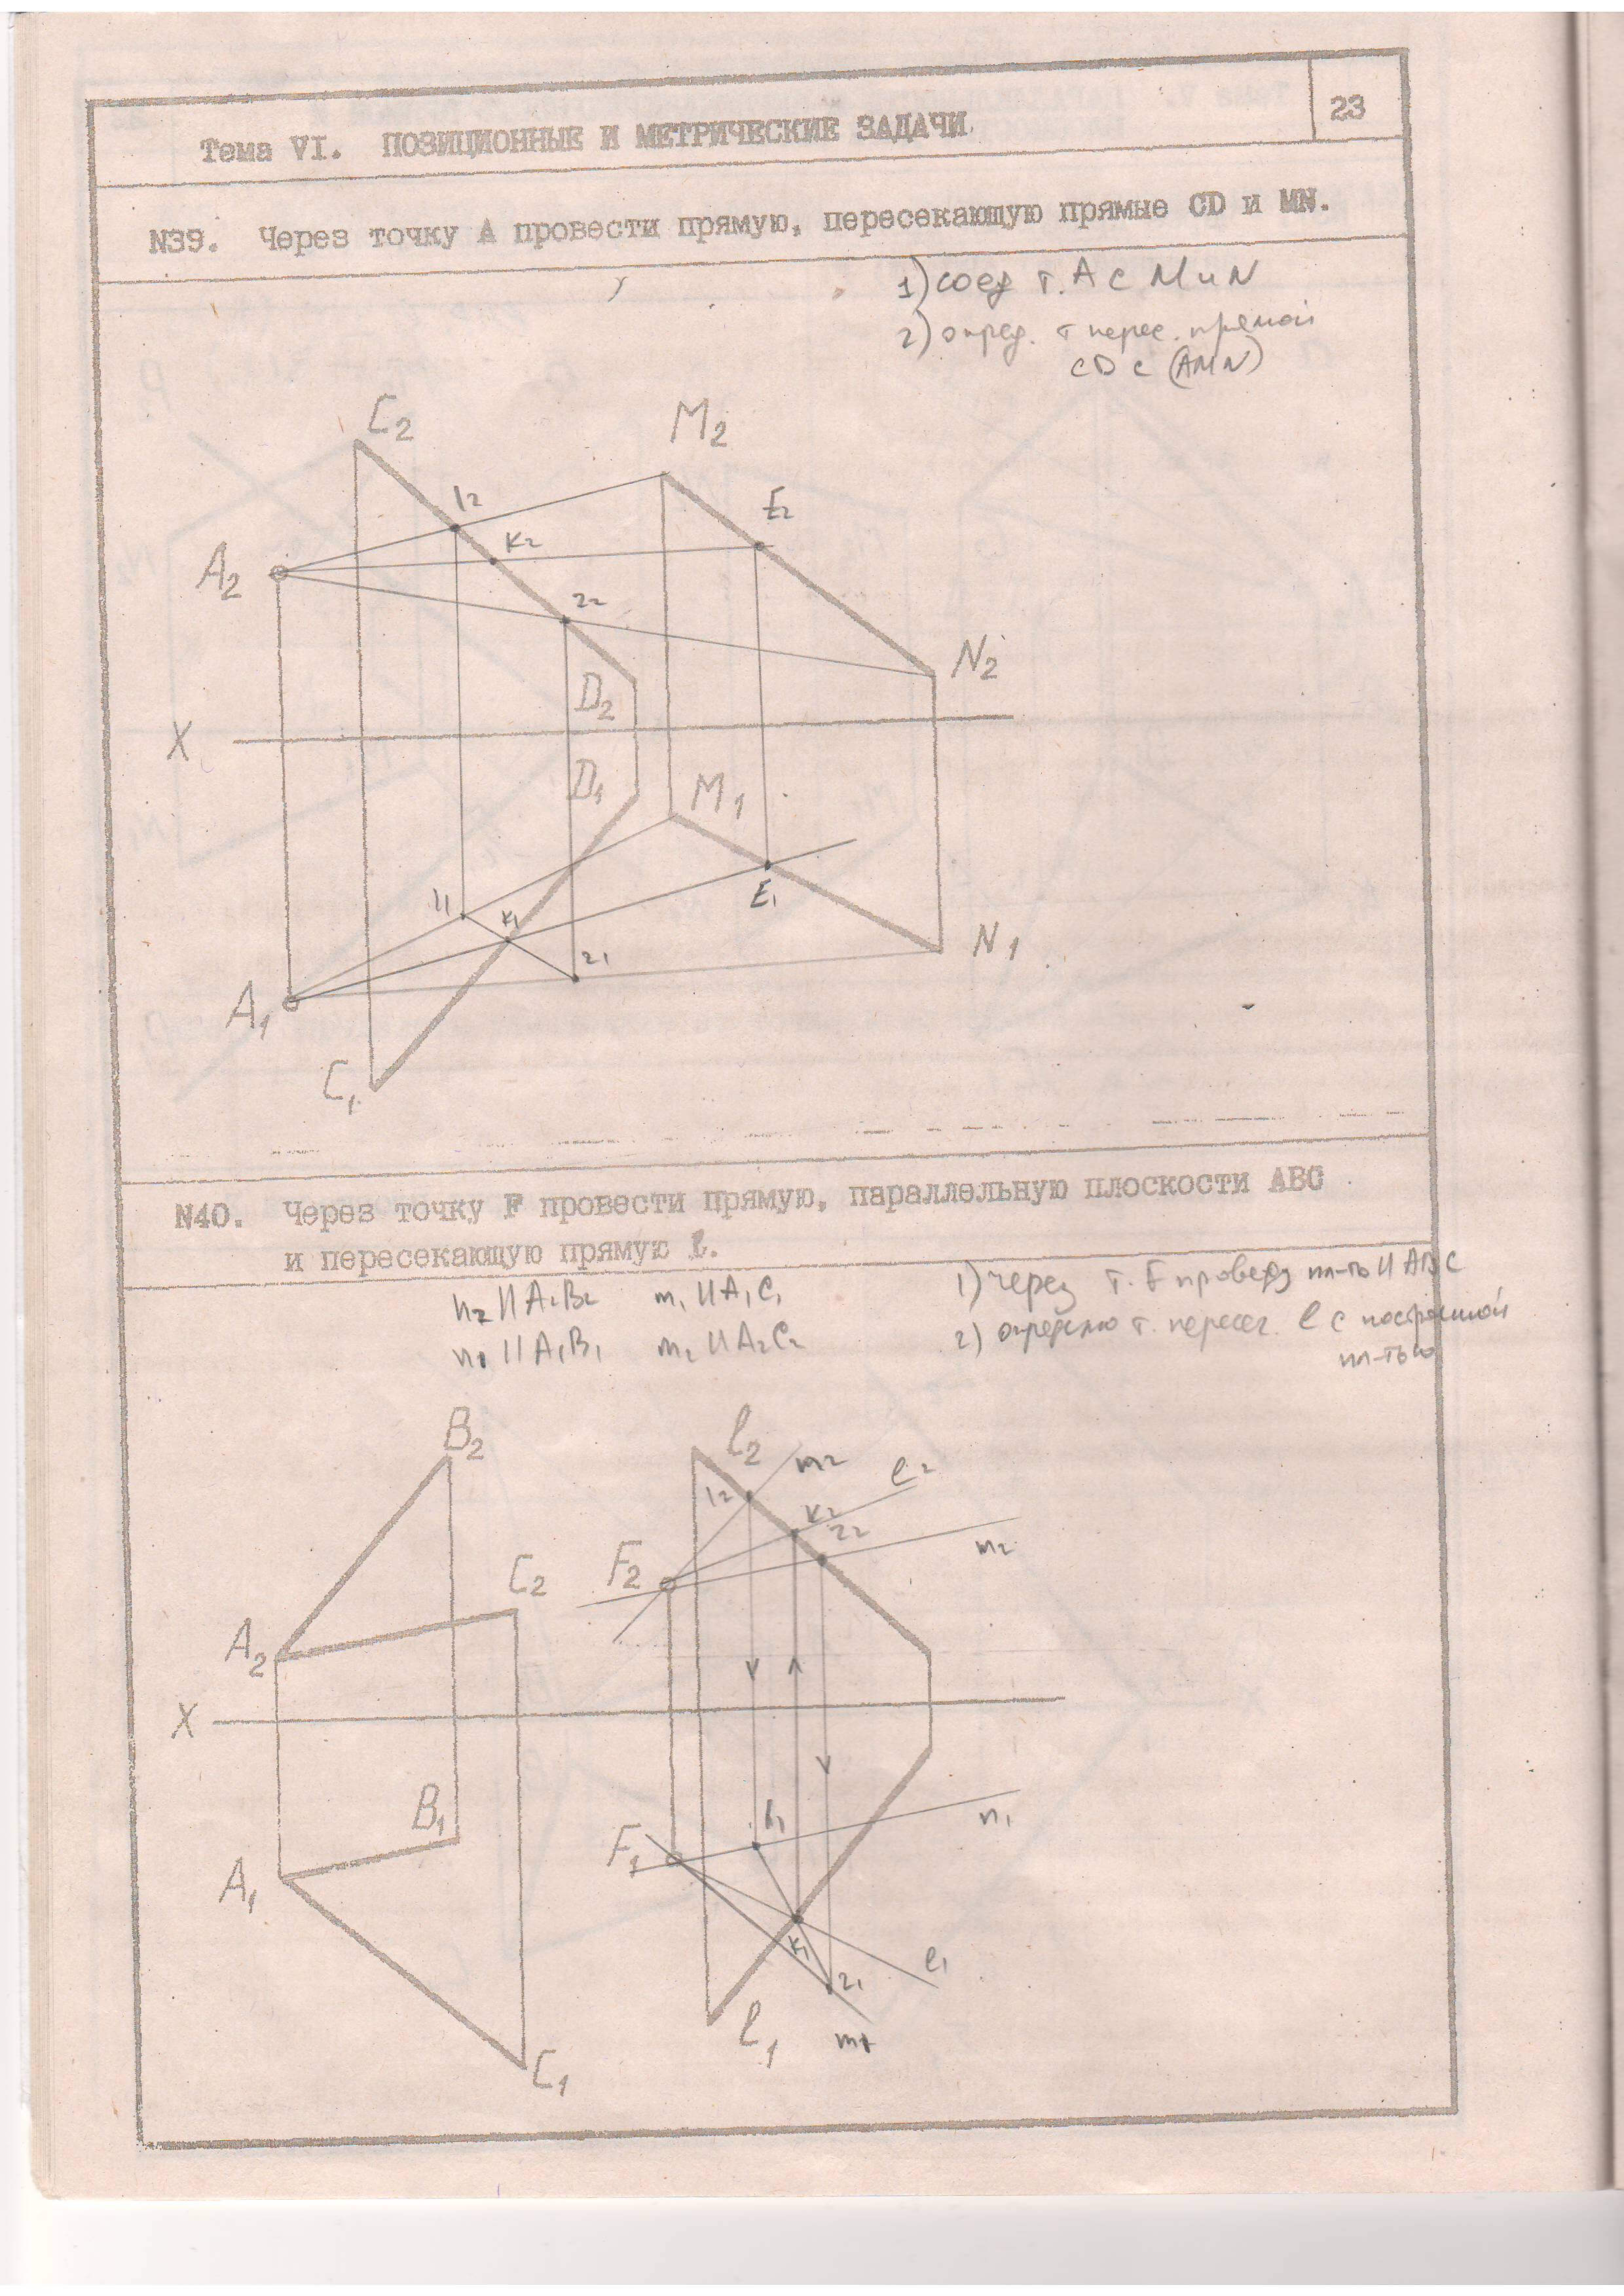 23
Тема VI. ПОЗИЦИОННЫЕ И МЕТРИЧЕСКИЕ ЗАДАЧИ.
N39. Через точку A провести прямую, пересекающую прямые CD и MN.
1) соед т. A с M и N
2) опред. т перес. прямой
CD с (AMN)
C2
M2
12
E2
K2
A2
22
N2
D2
X
D1
M1
11
K1
E1
21
N1
A1
C1
N40. Через точку F провести прямую, параллельную плоскости ABC
и пересекающую прямую ℓ.
n2 || A2B2 m1 || A1C1
n1 || A1B1 m2 || A2C2
1) через т. F проведу пл-ть || ABC
2) определю т. пересеч. ℓ с построенной
пл-тью
B2
ℓ2
m2
e2
12
K2
22
F2
m2
C2
A2
X
B1
11
n1
F1
A1
K1
e1
21
ℓ1
m1
C1